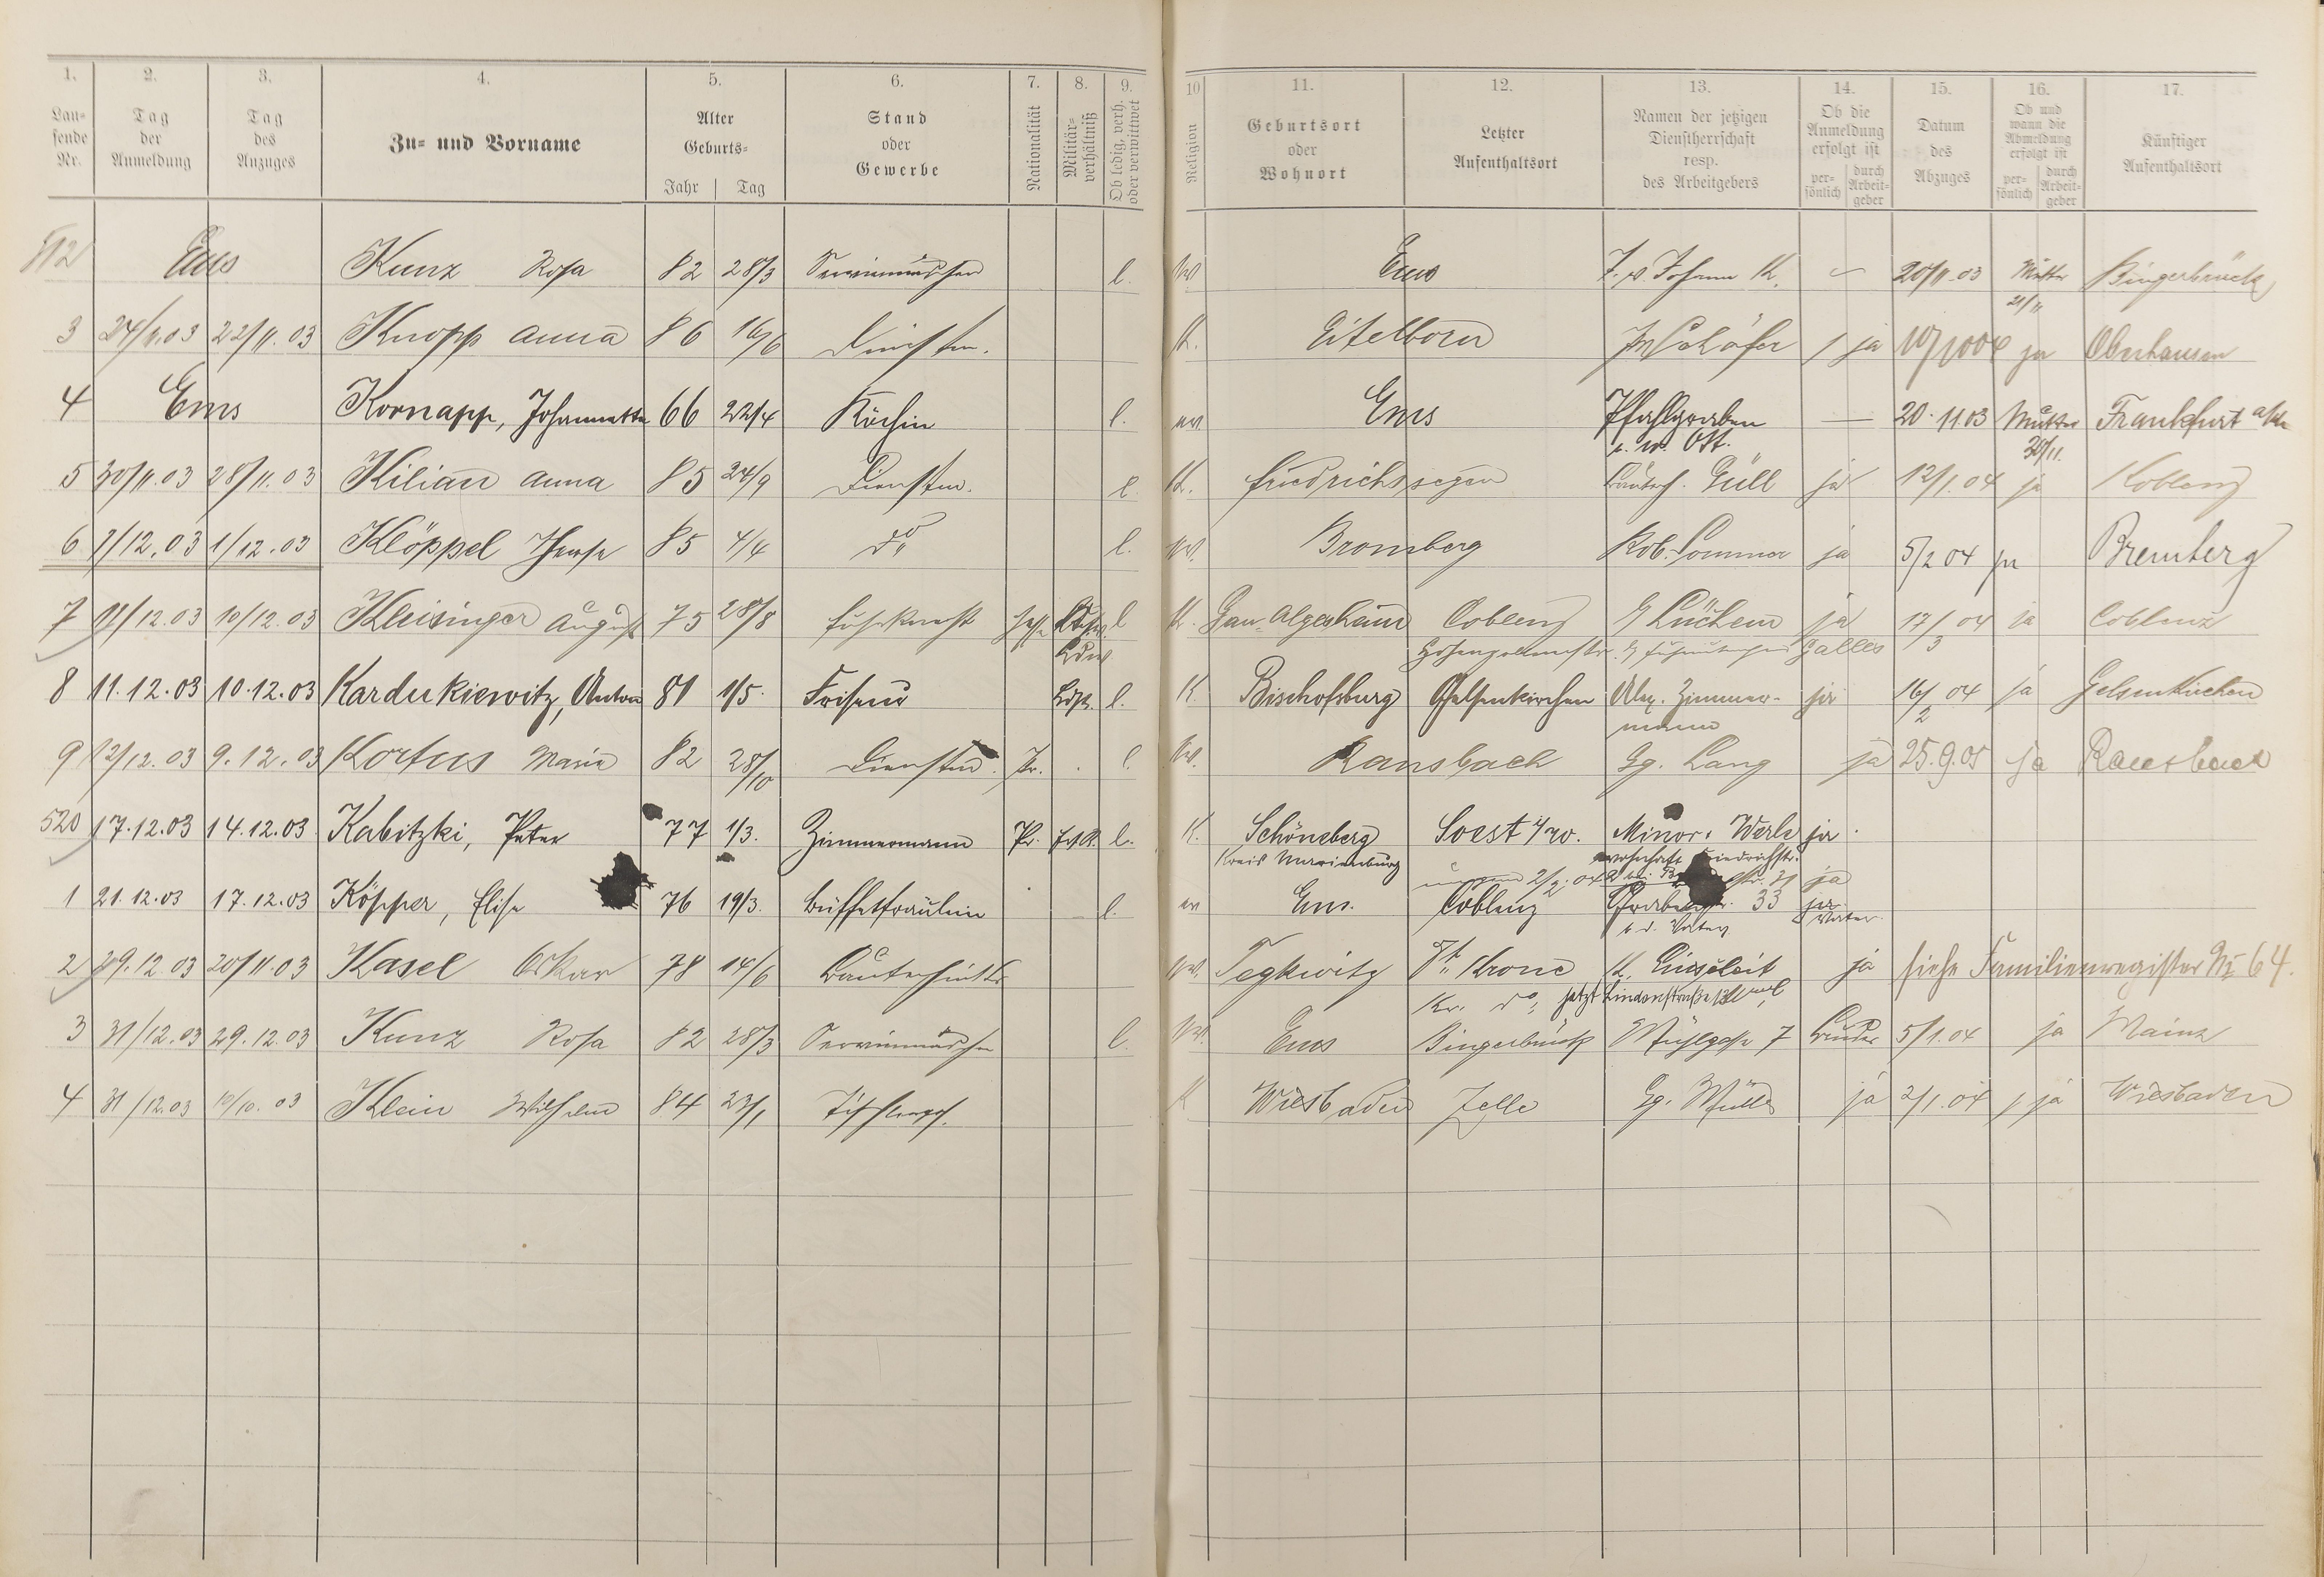 1. 2. 3. 4. 5. 6. 7. 8. 9. 10 11. 12. 13. 14. 15. 16. 17.
Laufende Nr. Tag der Anmeldung Tag des Anzuges Zu- und Vorname Alter Geburts- Jahr Tag Stand oder Gewerbe Nationalität Militär-verhältniß Ob ledig, verh. oder verwittwet Religion Geburtsort oder Wohnort Letzter Aufenthaltsort Namen der jetzigen Dienstherrschaft resp. des Arbeitgebers Ob die Anmeldung erfolgt ist per-sönlich durch Arbeit-geber Datum des Abzuges Ob und wann die Abmeldung erfolgt ist per-sönlich durch Arbeit-geber Künftiger Aufenthaltsort
512 Ems Kunz Rosa 82 28/3 l. Ems Johann K. 20/11.03 Mutter Bingerbrück
21/11
3 24/11.03 22/11.03 Knopp Anna 86 16/6 Dienstm. K. Eitelborn Schäfer ja ja Oberhausen
4 Ems Kornapp, Johannette 66 22/4 Köchin l. ev. Ems Pfahlgraben — 20.11.03 Mutter Frankfurt a/M
30/11.
5 30/11.03 28/11.03 Kilian Anna 85 24/9 Dienstm. l. K. Friedrichssegen Güll ja 12/1.04 ja Koblenz
6 1/12.03 1/12.03 Klöppel 85 4/4 do l. ev. Bromberg Rob. Sommer ja 5/2 04 ja Bremberg
7 11/12.03 10/12.03 Kleisinger August 75 28/8 Fuhrknecht l K. Gau-Algesheim Coblenz G Lüchem ja 17/3 04 ja Coblenz
8 11.12.03 10.12.03 Kardukiewitz, Anton 81 1/5. Friseur l. K. Bischofsburg Gelsenkirchen Alex. Zimmer- ja 16/2 04 ja Gelsenkirchen
mann
9 12/12.03 9.12.03 Kortus Maria 82 28/10 Dienstm. Pr. l. ev. Ransbach Gg. Lang ja 25.9.05 ja Ransbach
520 17.12.03 14.12.03. Kabitzki, Peter 77 1/3. Zimmermann Pr. l. K. Schöneberg Soest Minor. Werle ja
Kreis Marienburg wohnhaft Friedrichstr.
ja
1 21.12.03 17.12.03 Köpper, Elise 76 19/3. Büffetfräulein l. ev Ems. Coblenz 33 ja
b. d. Vater Vater
2 29.12.03 20/11.03 Kasel Oskar 78 14/6 ev. Tegkwitz Dt. Krone ja siehe Familienregister No 64.
Kr. do, jetzt Lindenstraße
3 31/12.03 29.12.03 Kunz Rosa 82 28/3 l. ev. Ems Bingerbrück Mühlgasse 7 Bruder 5/1.04 ja Mainz
4 31/12.03 10/10.03 Klein Wilhelm 84 23/1 K Wiesbaden Zelle Gg. Müller ja 2/1.04 ja Wiesbaden